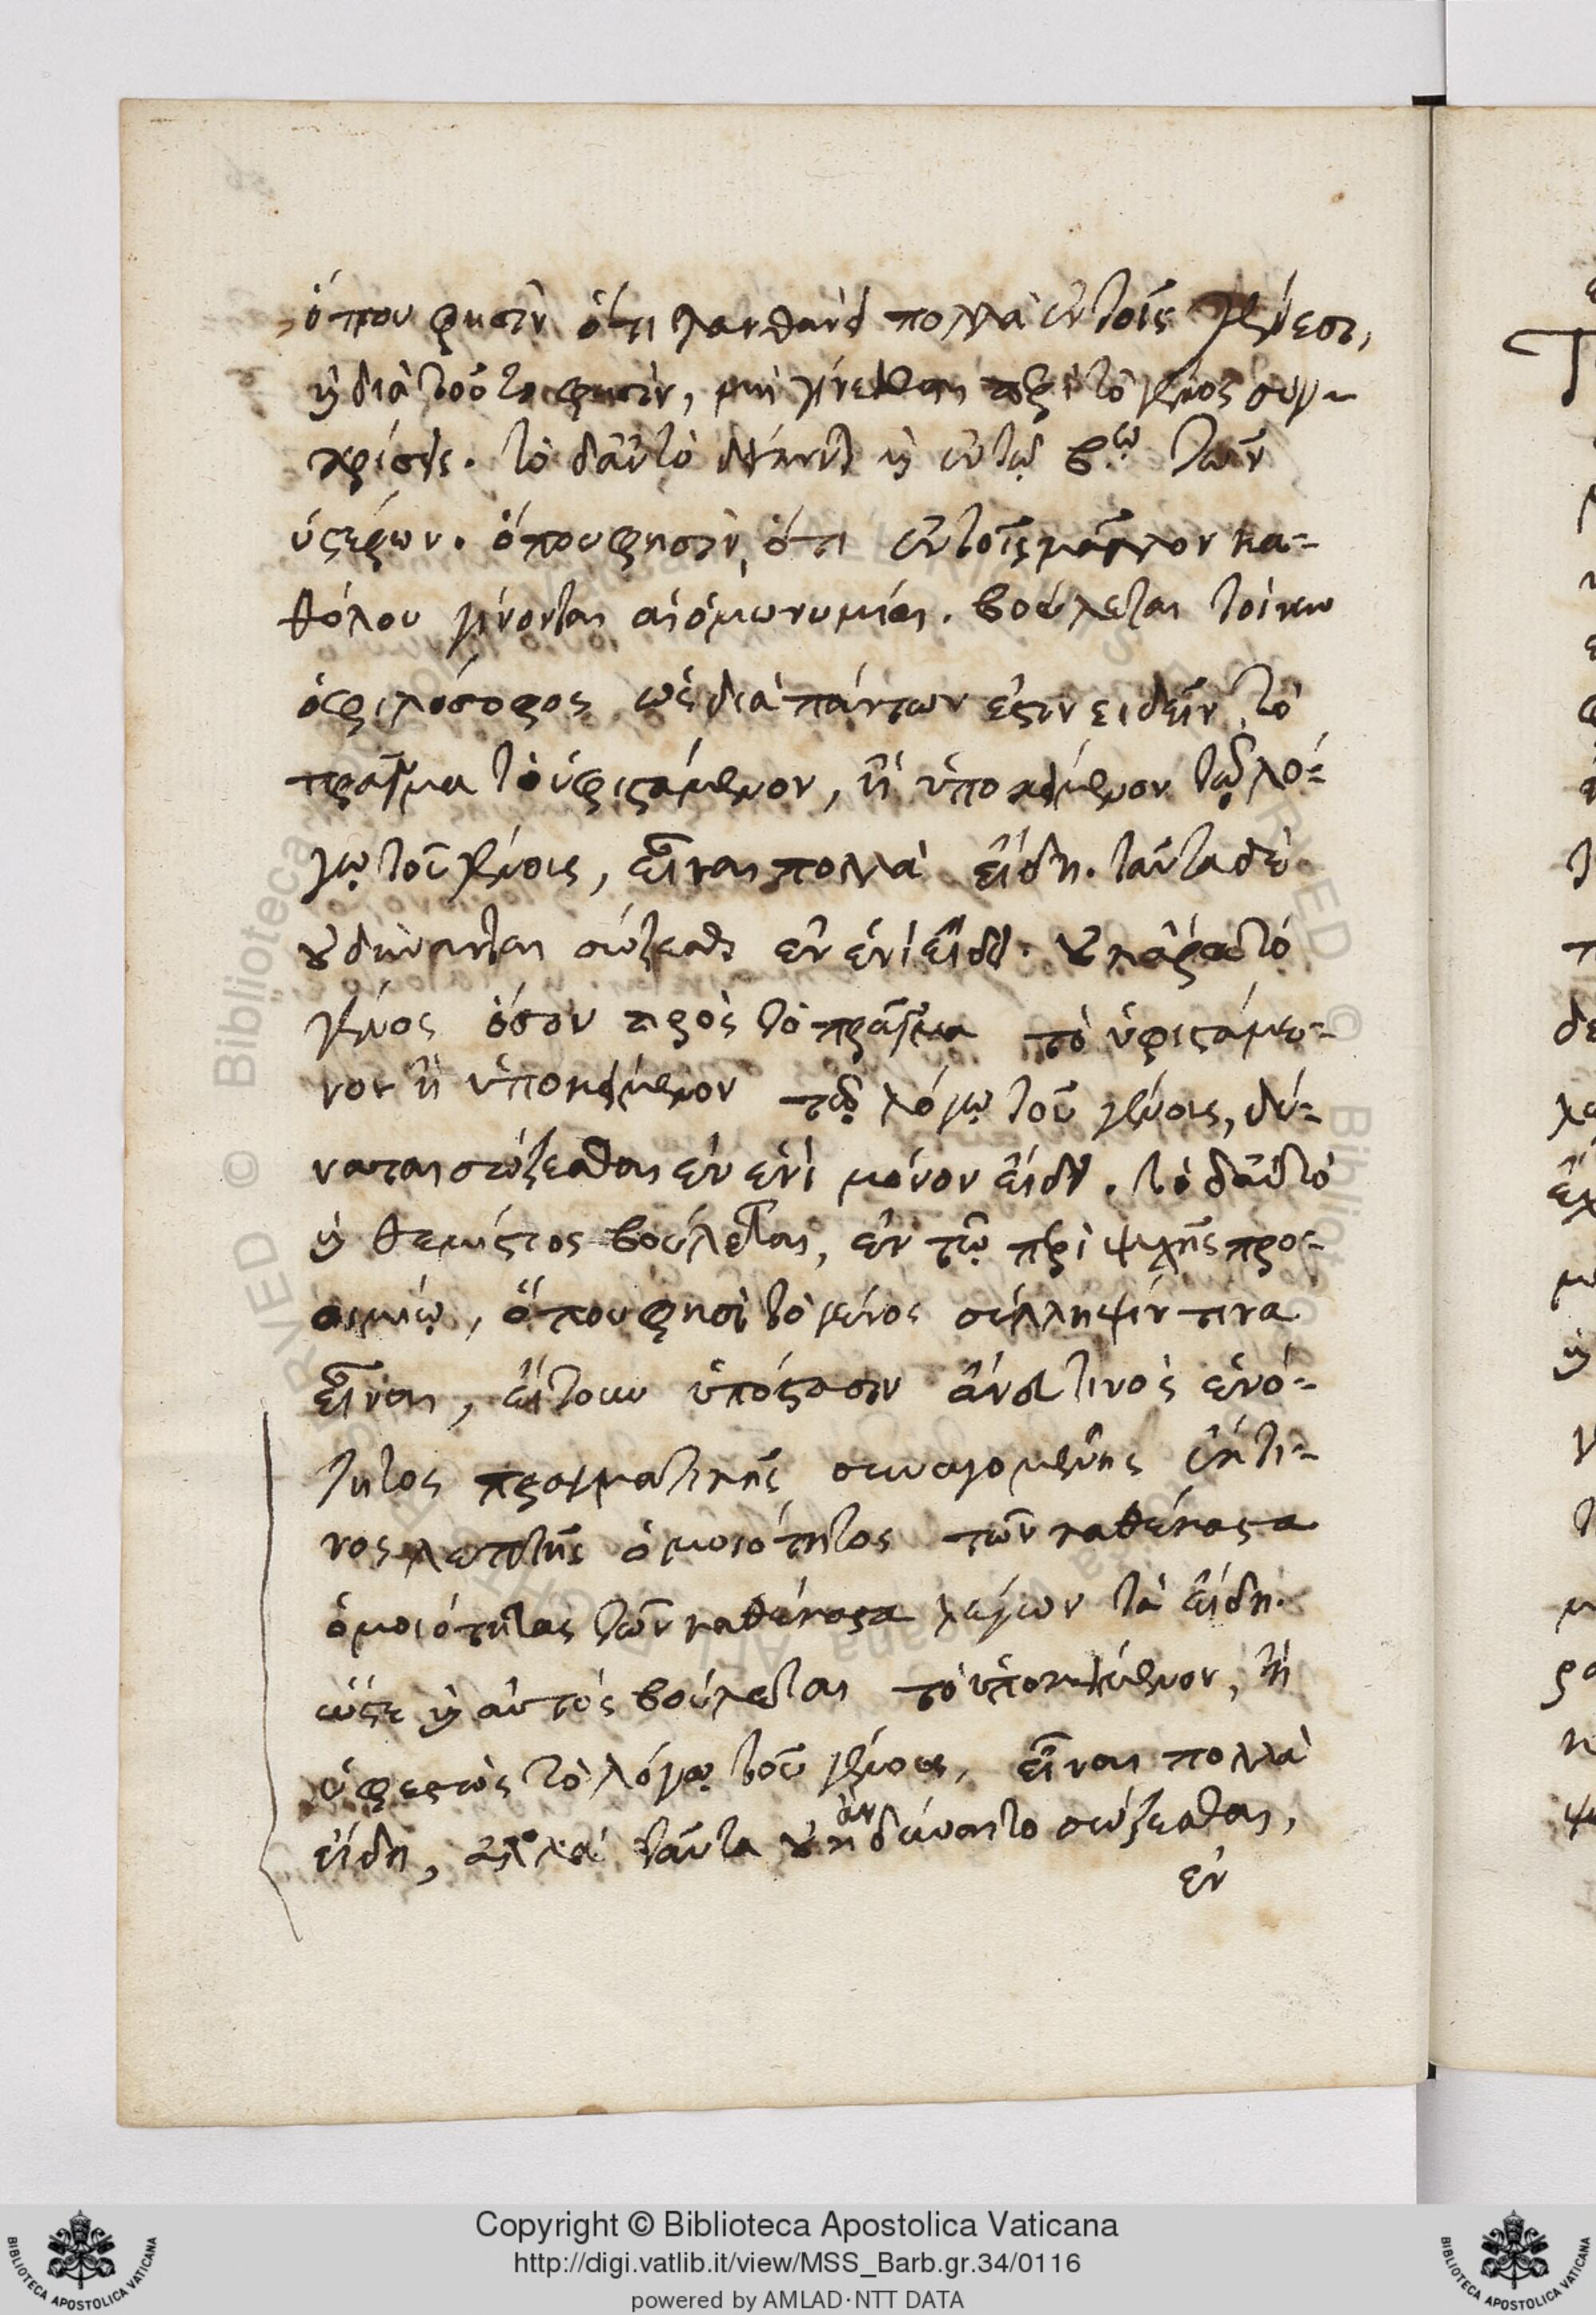 ὅπου φησὶν ὅτι λανθάνει πολλὰ ἐν τοῖς γένεσι,
καὶ διὰ τοῦτο φησὶν, μὴ γίνεσθαι περὶ τὸ γένος συγ-
κρίσεις. τὸ δ' αὐτὸ καὶ ἐν τῷ β.ῳ τῶν
ὑστέρων. ὅπου φησὶν, ὅτι ἐν τοῖς μᾶλλον κα-
θόλου γίνονται αἱ ὁμωνυμίαι. βούλεται τοίνυν
ὁ φιλόσοφος ὡς διὰ πάντων ἐστιν ειδεῖν τὸ
πρᾶγμα τὸ ὑφιστάμενον, ἢ ὑποκείμενον τῷ λό-
γῳ τοῦ γένους, εἶναι πολλὰ εἴδη. ταῦτα δὲ
οὐ δύνανται σώζεσθαι ἐν ἑνὶ εἴδει. οὐκ ἄρα τὸ
γένος ὅσον πρὸς τὸ πρᾶγμα τὸ ὑφιστάμε-
νον ἢ ὑποκείμενον τῷ λόγῳ τοῦ γένους, δύ-
ναται σώζεσθαι ἐν ἑνὶ μόνον εἴδει. τὸ δ' αὐτὸ
καὶ θεμίστιος βούλεται, ἐν τῷ περὶ ψυχῆς προ-
οιμίῳ, ὅπου φησὶ τὸ γένος σύλληψίν τινα
εἶναι, εἴτουν ὑπόστασιν ἄνευ τινὸς ἑνό-
τητος πραγματικῆς συναγομένης ἐκ τι-
νος λεπτῆς ὁμοιότητος τῶν καθέκαστα
ὁμοιότητας τῶν καθέκαστα λέγων τὰ εἴδη.
ὥστε καὶ αὐτὸς βούλεται τὸ ὑποκείμενον, ἢ
ὑφεστὼς τῷ λόγῳ τοῦ γένους, εἶναι πολλὰ
εἴδη, ἀλλὰ ταῦτα οὐκ ἂν δύναιντο σώζεσθαι,
ἐν
Copyright © Biblioteca Apostolica Vaticana
http://digi.vatlib.it/view/MSS_Barb.gr.34/0116
powered by AMLAD·NTT DATA